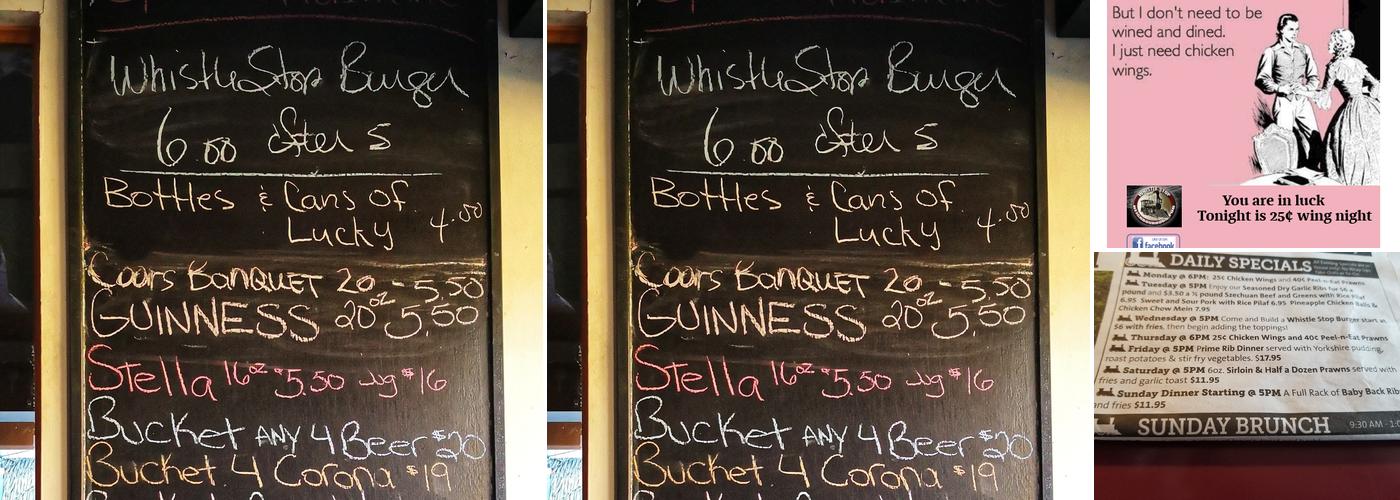 WhistleStop Burger
6.00 after 5
Bottles & Cans of
Lucky 4.00
Coors Banquet 20 - 5.50
GUINNESS 20oz 5.50
Stella 16oz $5.50 Jug $16
Bucket ANY 4 Beer $20
Bucket 4 Corona $19
WhistleStop Burger
6.00 after 5
Bottles & Cans of
Lucky 4.00
Coors Banquet 20 - 5.50
GUINNESS 20oz 5.50
Stella 16oz $5.50 Jug $16
Bucket ANY 4 Beer $20
Bucket 4 Corona $19
But I don't need to be
wined and dined.
I just need chicken
wings.
You are in luck
Tonight is 25¢ wing night
facebook
DAILY SPECIALS
Monday @ 6PM: 25¢ Chicken Wings and 40¢ Peel-n-Eat Prawns
Tuesday @ 5PM Enjoy our Seasoned Dry Garlic Ribs for $6 a
pound and $3.50 a ½ pound Szechuan Beef and Greens with Rice Pilaf
6.95 Sweet and Sour Pork with Rice Pilaf 6.95 Pineapple Chicken Balls &
Chicken Chow Mein 7.95
Wednesday @ 5PM Come and Build a Whistle Stop Burger start at
$6 with fries, then begin adding the toppings!
Thursday @ 6PM 25¢ Chicken Wings and 40¢ Peel-n-Eat Prawns
Friday @ 5PM Prime Rib Dinner served with Yorkshire pudding,
roast potatoes & stir fry vegetables. $17.95
Saturday @ 5PM 6oz. Sirloin & Half a Dozen Prawns served with
fries and garlic toast $11.95
Sunday Dinner Starting @ 5PM A Full Rack of Baby Back Rib
and fries $11.95
SUNDAY BRUNCH 9:30 AM - 1:0